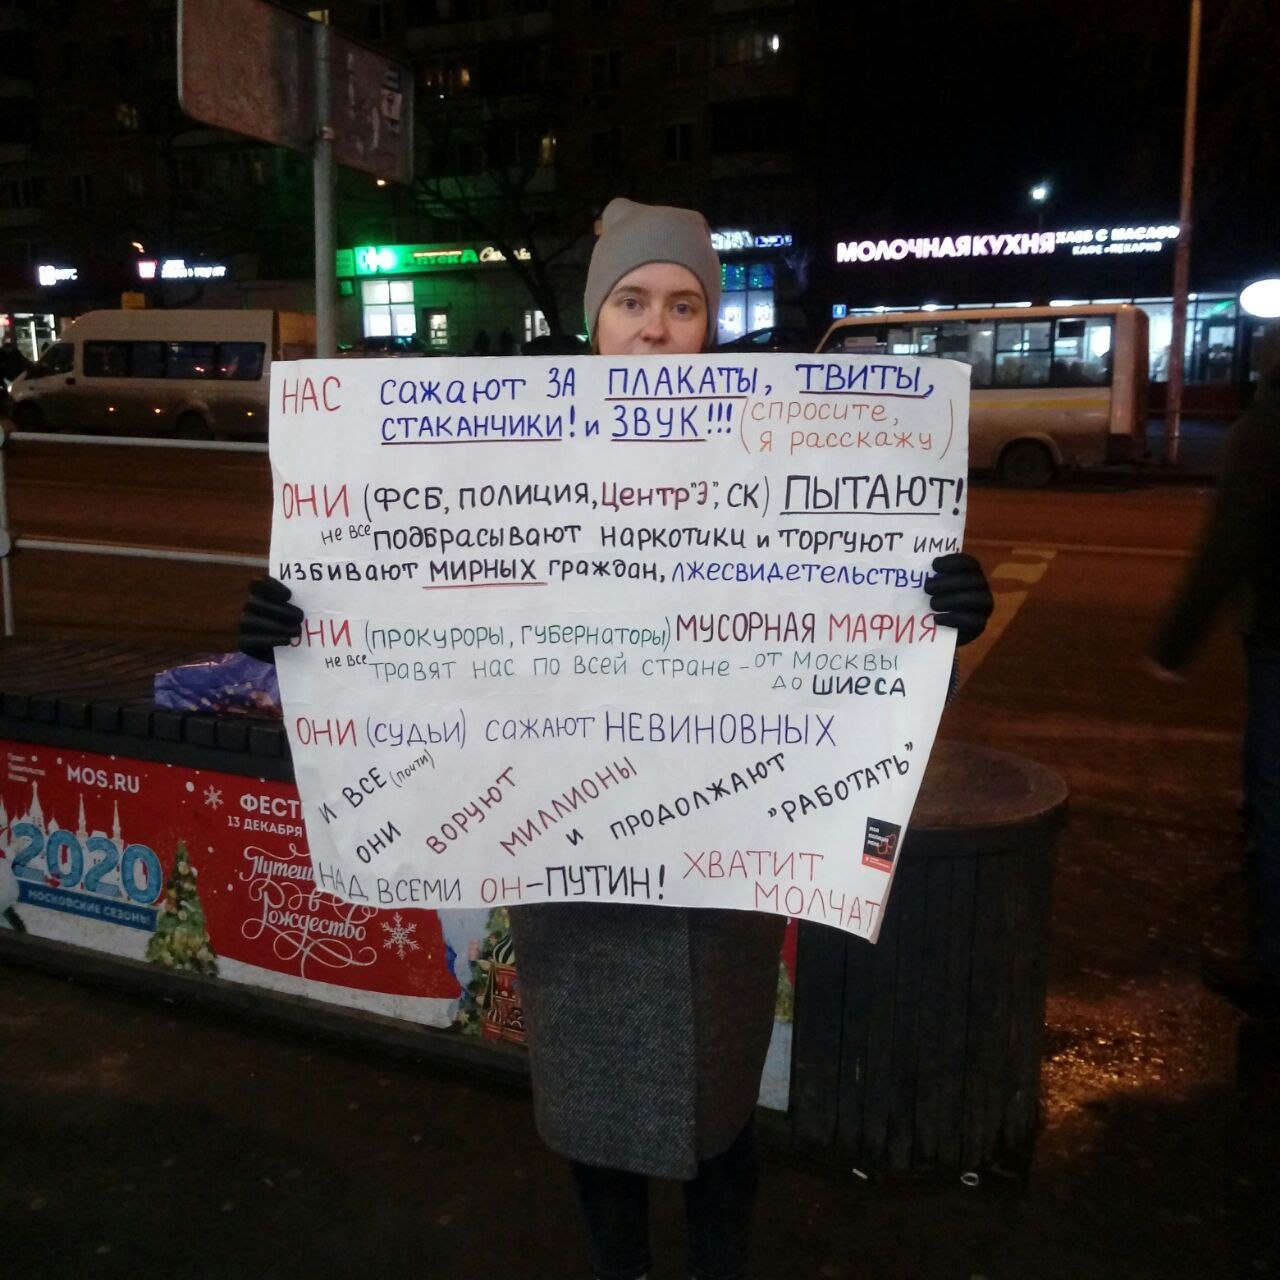 НАС сажают ЗА ПЛАКАТЫ, ТВИТЫ,
СТАКАНЧИКИ! и ЗВУК!!! (спросите,
я расскажу)
ОНИ (ФСБ, ПОЛИЦИЯ, Центр "Э", СК) ПЫТАЮТ!
не все подбрасывают наркотики и торгуют ими,
избивают МИРНЫХ граждан,
ОНИ (прокуроры, губернаторы) МУСОРНАЯ МАФИЯ
не все травят нас по всей стране - от Москвы
до ШИЕСА
ОНИ (судьи) сажают НЕВИНОВНЫХ
И ВСЕ (почти)
ОНИ ВОРУЮТ МИЛЛИОНЫ
И ПРОДОЛЖАЮТ "РАБОТАТЬ"
НАД ВСЕМИ ОН - ПУТИН!
ХВАТИТ
МОЛЧАТ
МОЛОЧНАЯ КУХНЯ
ХЛЕБ С МАСЛОМ
КАФЕ-ПЕКАРНЯ
MOS.RU
13 ДЕКАБРЯ
2020
МОСКОВСКИЕ СЕЗОНЫ
в
Рождество